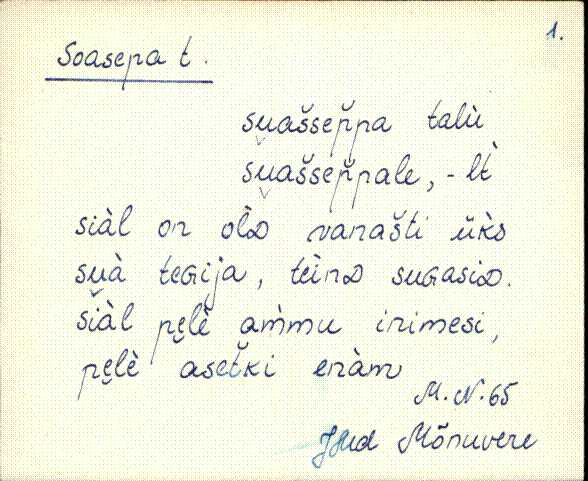 1.
Soasepa t.
su̬aššep̌pa talù
su̬aššep̌pale, -lt̀
siàl on olᴅ̀ vanašti üks̀
su̬à teɢija, teìnᴅ suɢasiᴅ.
šiàl pe̮lè am̀mu inimesi,
pe̮lè aset̆ki enàm
M. N. 65
Mõnuvere